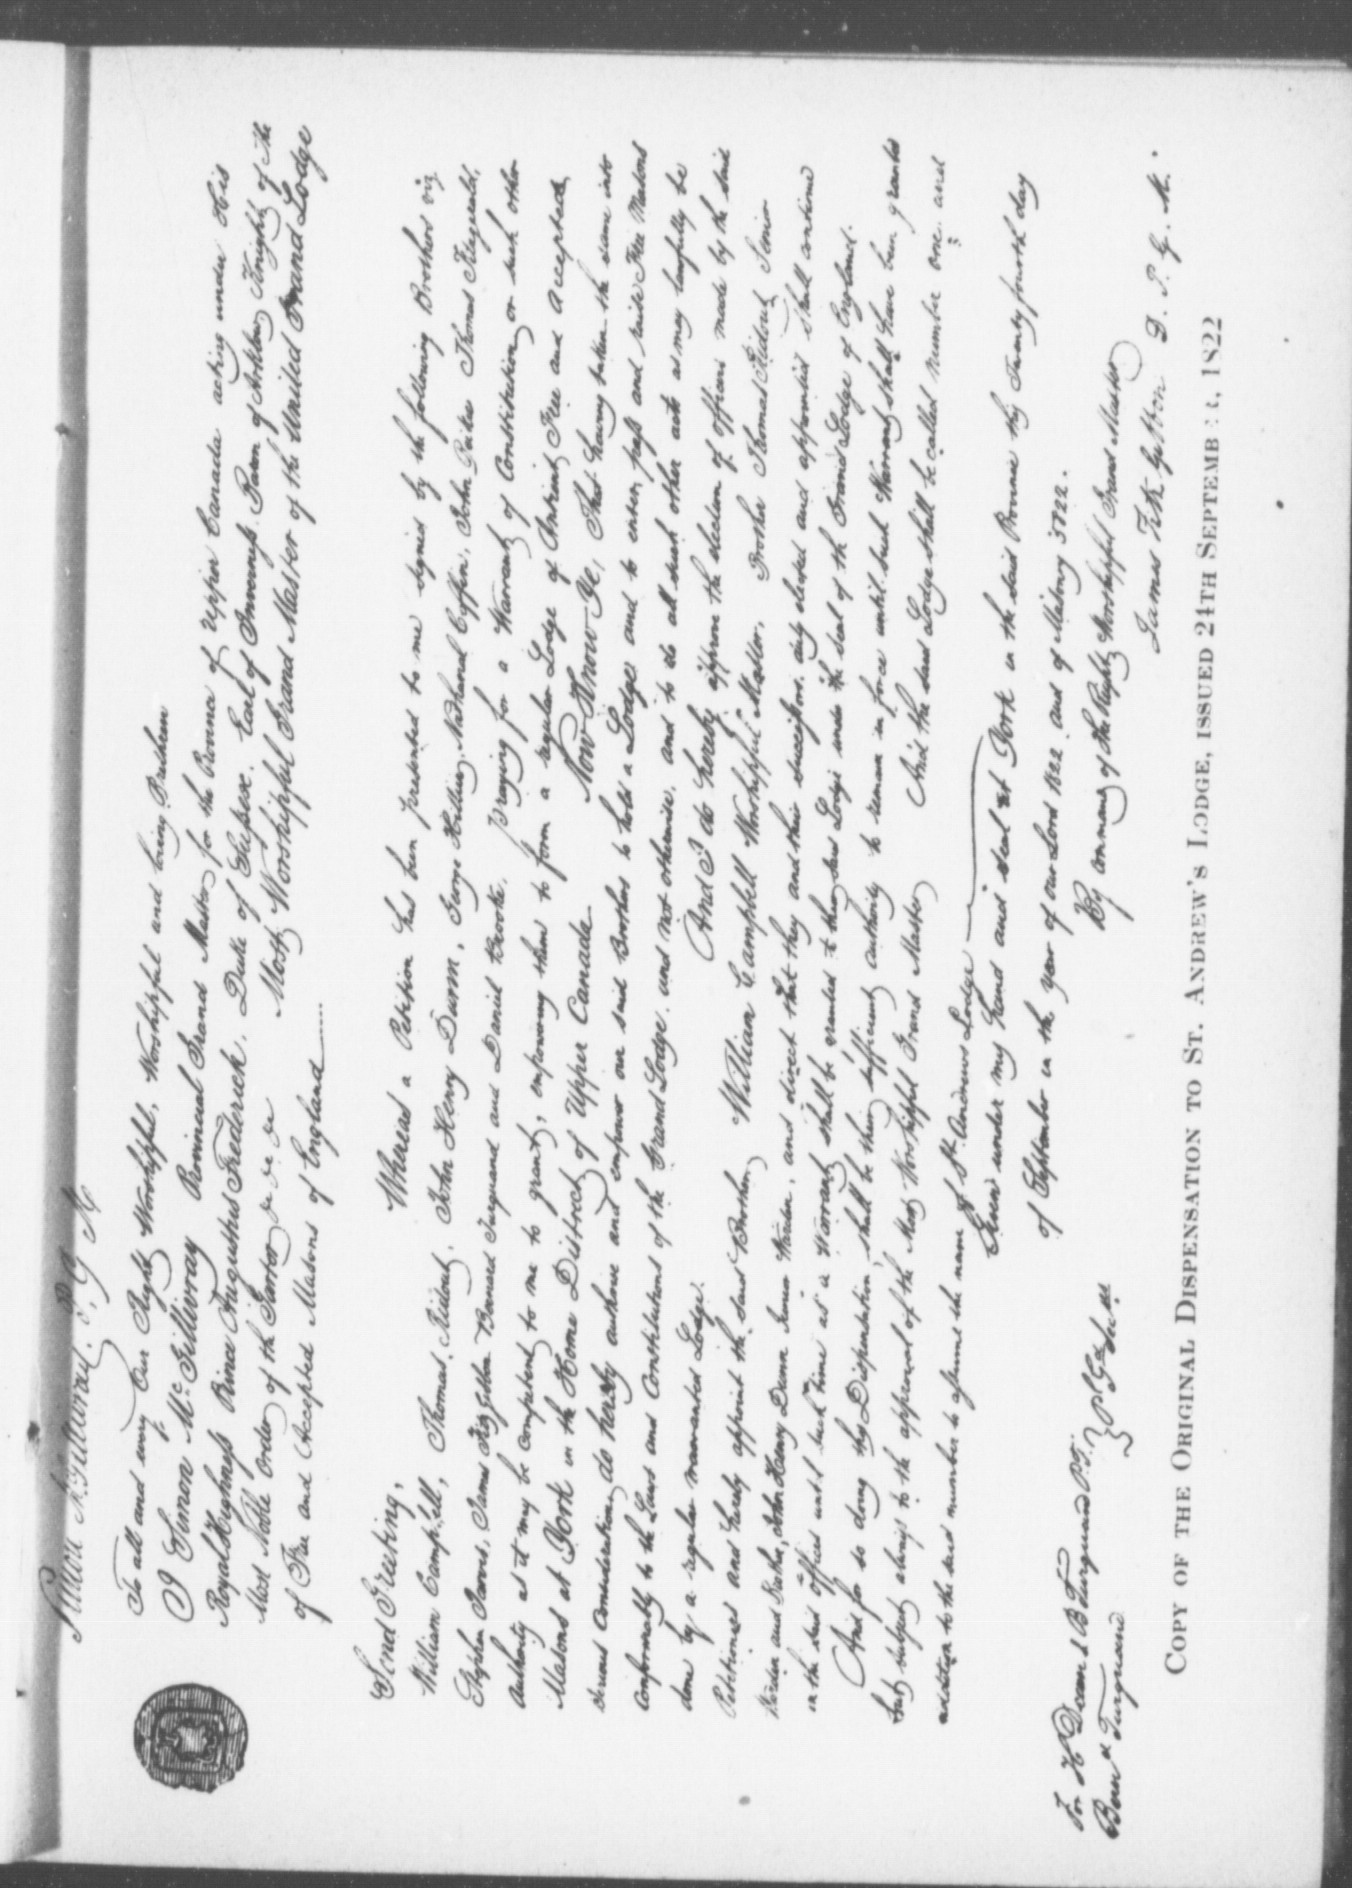 Simon McGillivray. P. G. M
To all and every Our Right Worshipful, Worshipful and loving Brethren
I Simon McGillivray Provincial Grand Master for the Province of Upper Canada acting under His
Royal Highness Prince Augustus Frederick, Duke of Sussex. Earl of Inverness. Baron of Arklow, Knight of the
Most Noble Order of the Garter &c &c &c Most Worshipful Grand Master of the United Grand Lodge
of Free and Accepted Masons of England
Send Greeting,
Whereas a Petition has been presented to me signed by the following Brothers viz
William Campbell, Thomas Ridout, John Henry Dunn, George Hillier, Nathaniel Coffin, John Beikie Thomas Fitzgerald,
Stephen Jarvis, James Fitz Gibbon Bernard Turquand and Daniel Brooke, praying for a Warrant of Constitution, or such other
authority as it may be competent to me to grant, empowering them to form a regular Lodge of Antient, Free and Accepted
Masons at York in the Home District of Upper Canada. Now Know Ye, That having taken the same into
serious Consideration, do hereby authorise and empower our said Brothers to hold a Lodge and to enter, pass and raise Free Masons
conformably to the Laws and Constitutions of the Grand Lodge. and not otherwise, and to do all such other acts as may lawfully be
done by a regular warranted Lodge. And I do hereby approve the election of officers made by the said
Petitioners and hereby appoint the said Brother William Campbell Worshipful Master, Brother Thomas Ridout Senior
Warden and Brother John Henry Dunn Junior Warden, and direct that they and their successors duly elected and appointed shall continue
in the said offices until such time as a Warrant shall be granted to the said Lodge under the seal of the Grand Lodge of England.
And for so doing this Dispensation shall be their sufficient authority to remain in force until such Warrant shall have been granted
but subject always to the approval of the Most Worshipful Grand Master And the said Lodge shall be called number one and
addition to the said number to assume the name of St. Andrews Lodge
Given under my hand and seal at York in the said Province this Twenty fourth day
of September in the year of our Lord 1822 and of Masonry 5822.
By command of the Right Worshipful Grand Master
James Fitz Gibbon D. P. G. M.
For H Dean & B Turquand P.T. } P Gd Secs
Bernd Turquand
COPY OF THE ORIGINAL DISPENSATION TO ST. ANDREW'S LODGE, ISSUED 24TH SEPTEMBER, 1822